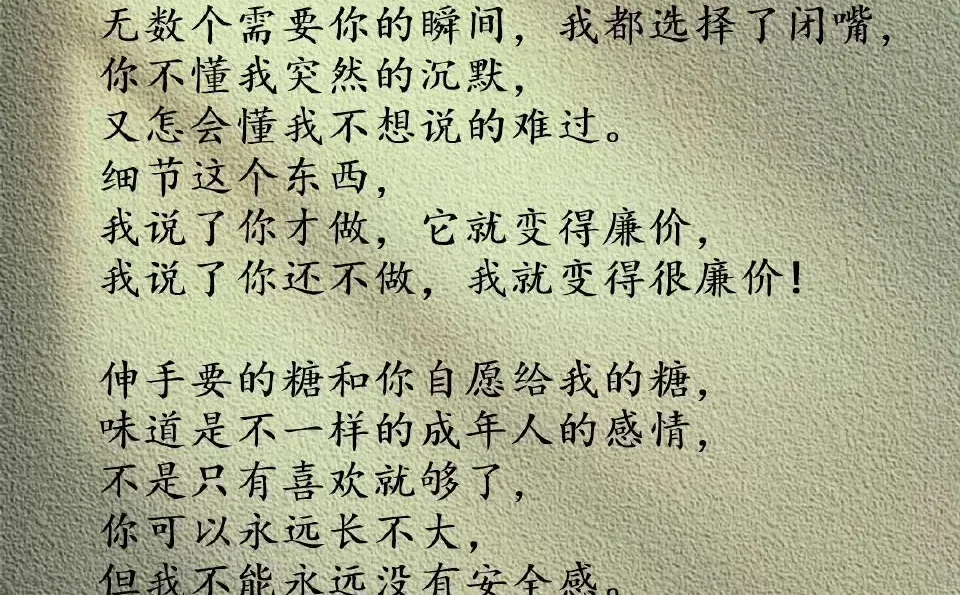 无数个需要你的瞬间，我都选择了闭嘴，
你不懂我突然的沉默，
又怎会懂我不想说的难过。
细节这个东西，
我说了你才做，它就变得廉价，
我说了你还不做，我就变得很廉价！
伸手要的糖和你自愿给我的糖，
味道是不一样的成年人的感情，
不是只有喜欢就够了，
你可以永远长不大，
但我不能永远没有安全感。